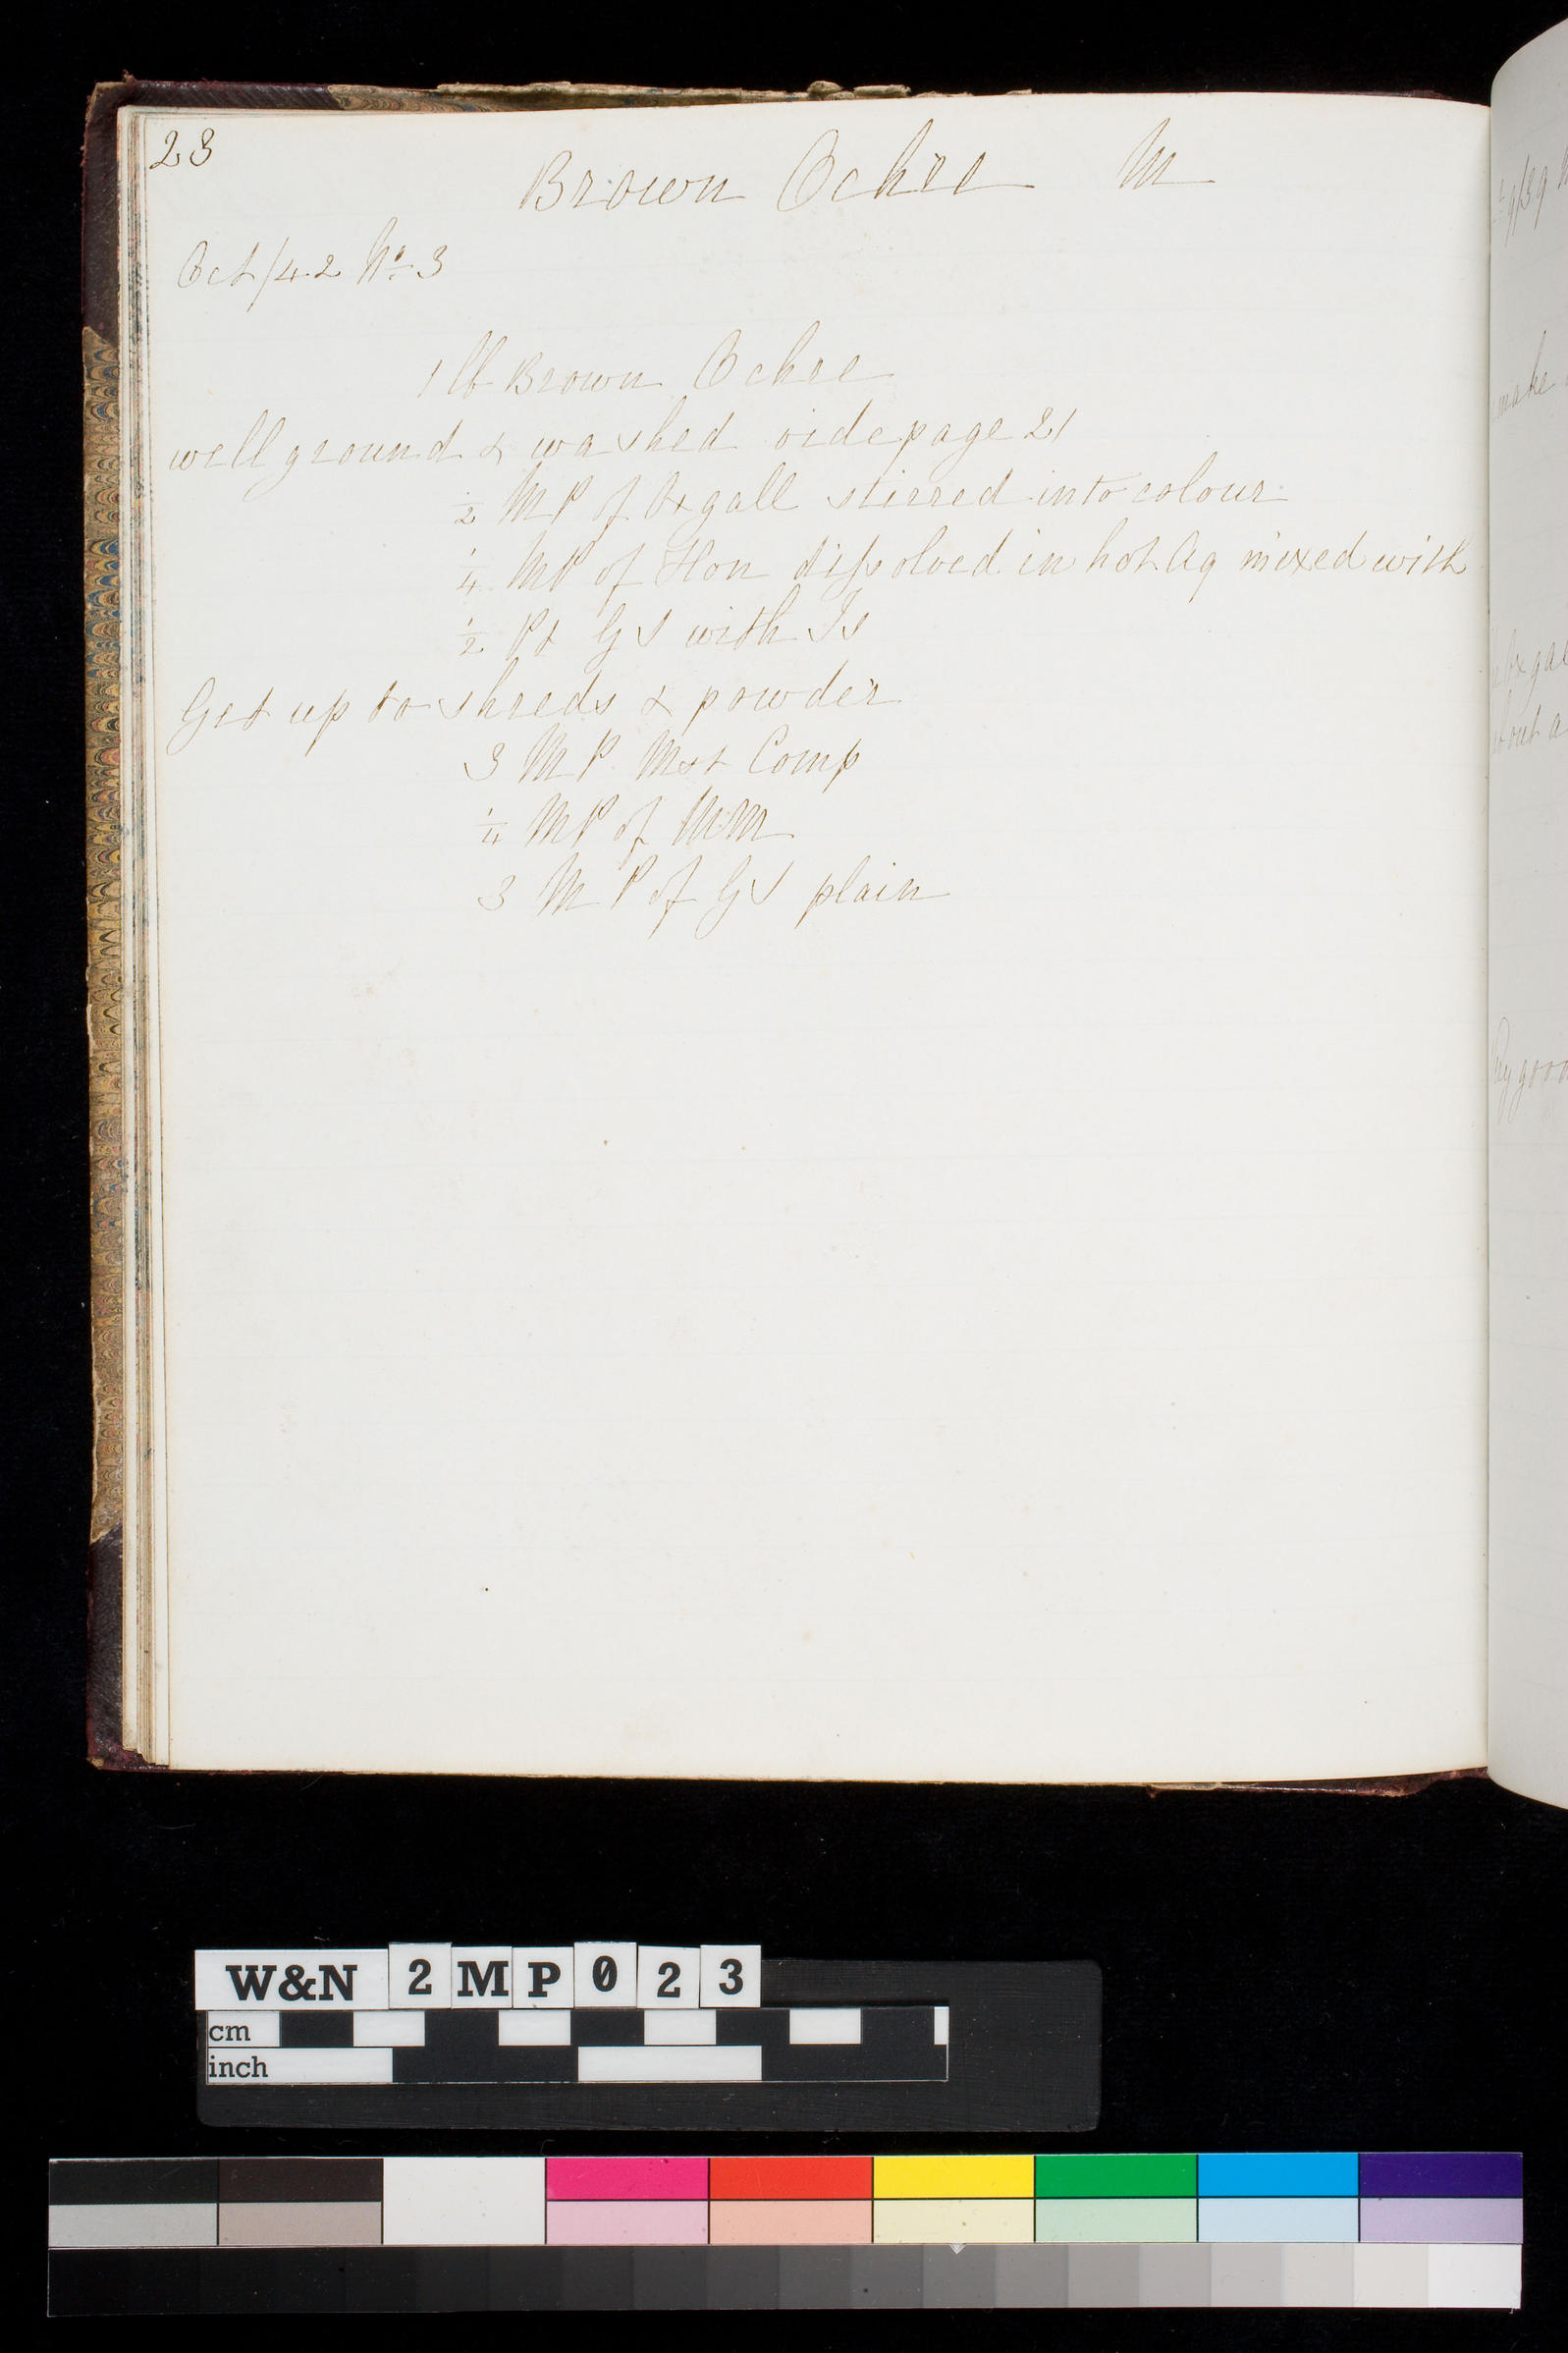 23
Brown Ochre M
Oct/42 No 3
1 lb Brown Ochre
well ground & washed vide page 21
½ MP of Oxgall stirred into colour
¼ MP of Hon dissolved in hot Aq mixed with
½ Pt GS with Is
Get up to shreds & powder
3 MP Mst Comp
¼ MP of MM
3 MP of GS plain
make
Oxgal
about a
good
W&N 2MP023
cm
inch